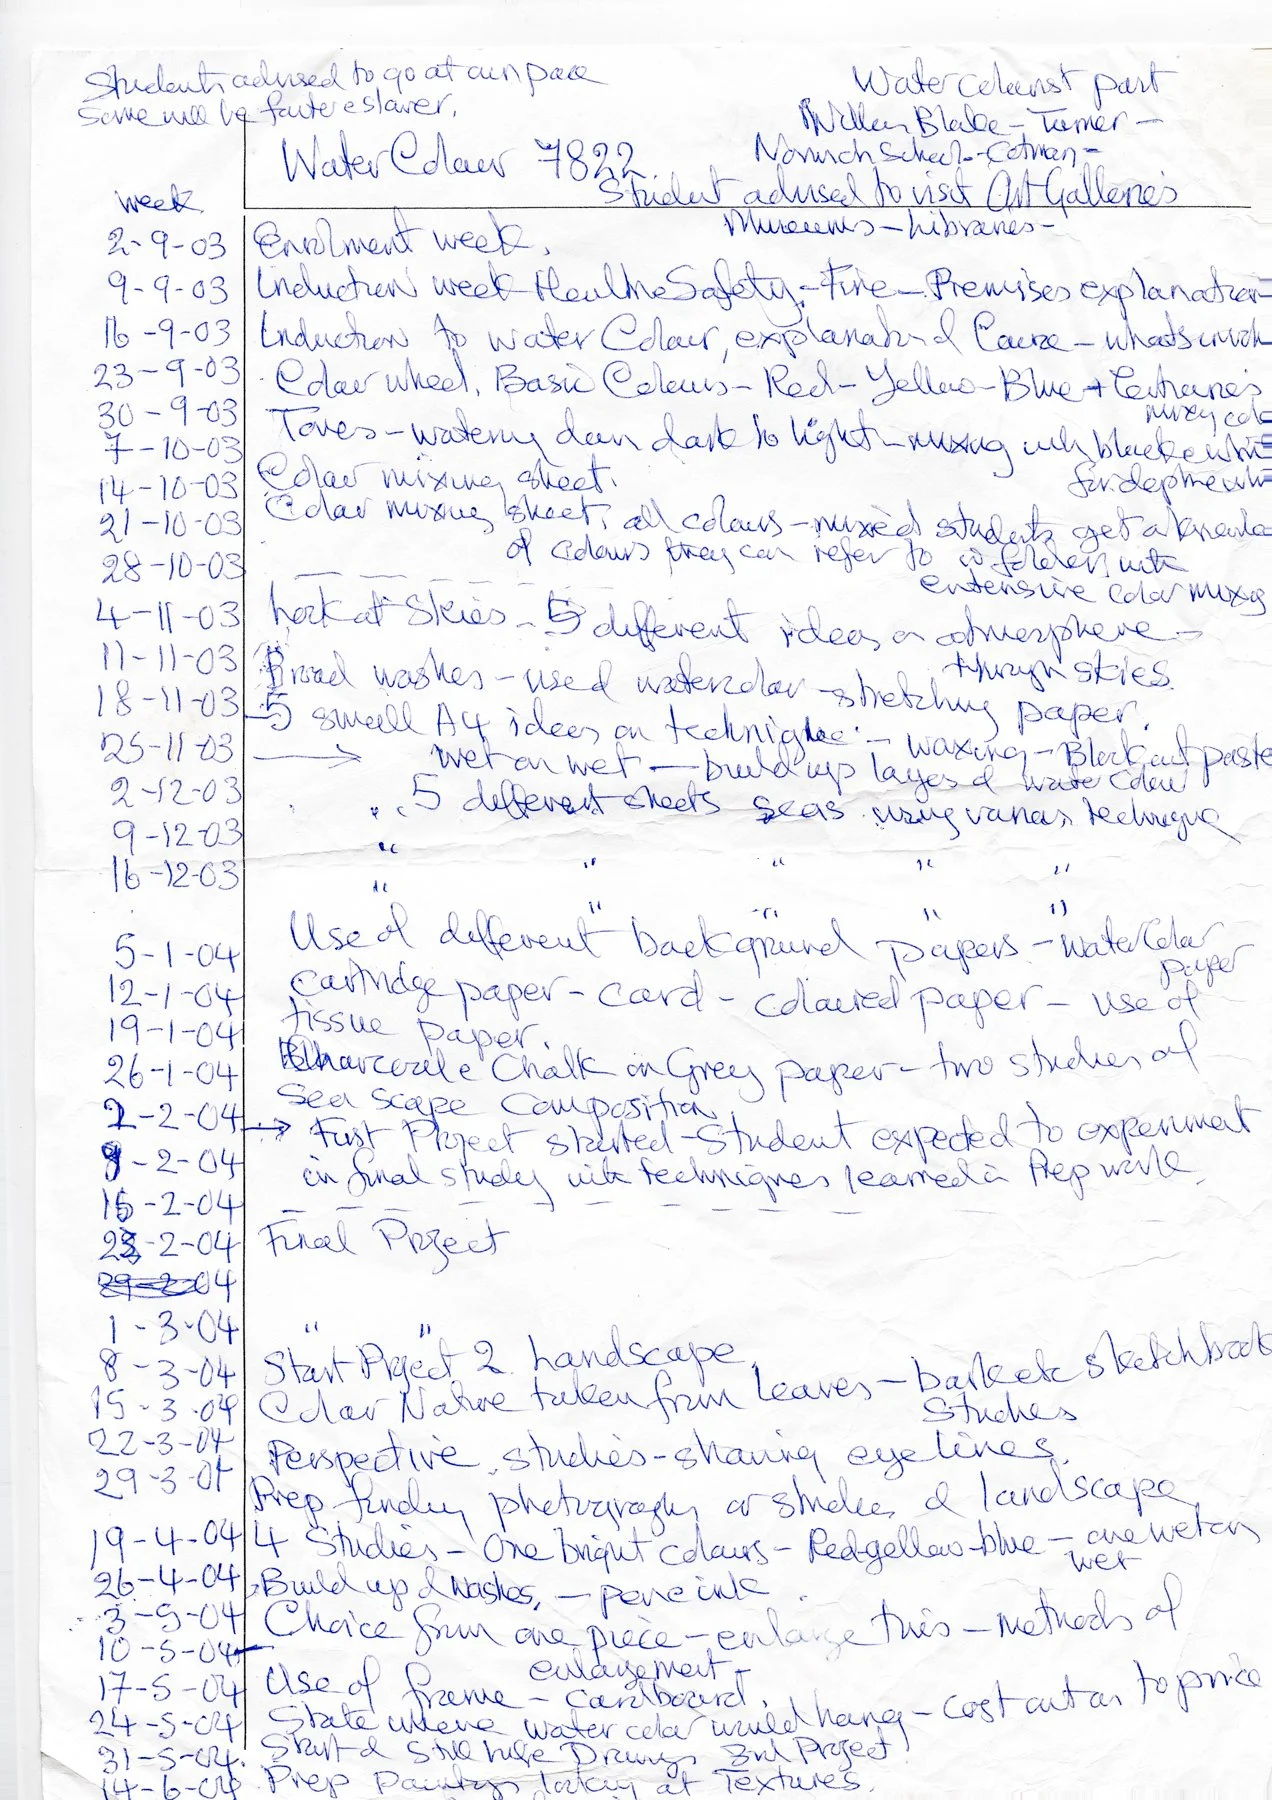 Students advised to go at own pace
Some will be faster & slower.
Watercolourist part
William Blake - Turner -
Norwich School - Cotman -
Water Colour 7822
Student advised to visit Art Galleries
Museums - Libraries -
week
2-9-03 Enrolment week.
9-9-03 Induction week - Health & Safety - Fire - Premises explanation
16-9-03 Induction to water Colour, explanation of Course - whats
23-9-03 Colour wheel. Basic Colours - Red - Yellow - Blue +
30-9-03 mixing
7-10-03 Tones - watering down dark to light - mixing with black & white
14-10-03 Colour mixing sheet. for
21-10-03 Colour mixing sheet, all colours - mixed students get a
of colours they can refer to in folder, with
28-10-03 extensive colour mixing
4-11-03 Look at Skies - 5 different ideas on atmosphere -
through skies
11-11-03 Broad washes - use of watercolour - stretching paper.
18-11-03 5 small A4 ideas on technique - waxing - Block out paste
25-11-03 wet on wet - build up layers of water colour
2-12-03 " 5 different sheets seas using various technique
9-12-03 " " " " "
16-12-03 " " " " "
5-1-04 Use of different background papers - water colour
paper
12-1-04 cartridge paper - card - coloured paper - use of
19-1-04 tissue paper.
26-1-04 Charcoal & Chalk on Grey paper - two studies of
Sea scape composition
2-2-04 → First Project started - Student expected to experiment
9-2-04 in final study with techniques learned in Prep work.
16-2-04
23-2-04 Final Project
04
1-3-04 " "
8-3-04 Start Project 2 Landscape.
15-3-04 Colour Nature taken from leaves - bark etc sketchbook
Studies
22-3-04 Perspective studies - showing eye lines.
29-3-04 Prep finding photographs or studies of landscape
19-4-04 4 Studies - One bright colours - Red-yellow-blue - one wet on
wet
26-4-04 Build up of washes, - pen & ink
3-5-04 Choice from one piece - enlarge this - methods of
10-5-04 enlargement -
17-5-04 Use of frame - cardboard.
24-5-04 State where water colour would hang - cost out
31-5-04 Start of Still life Drawings 3rd Project
14-6-04 Prep Paintings looking at Textures.